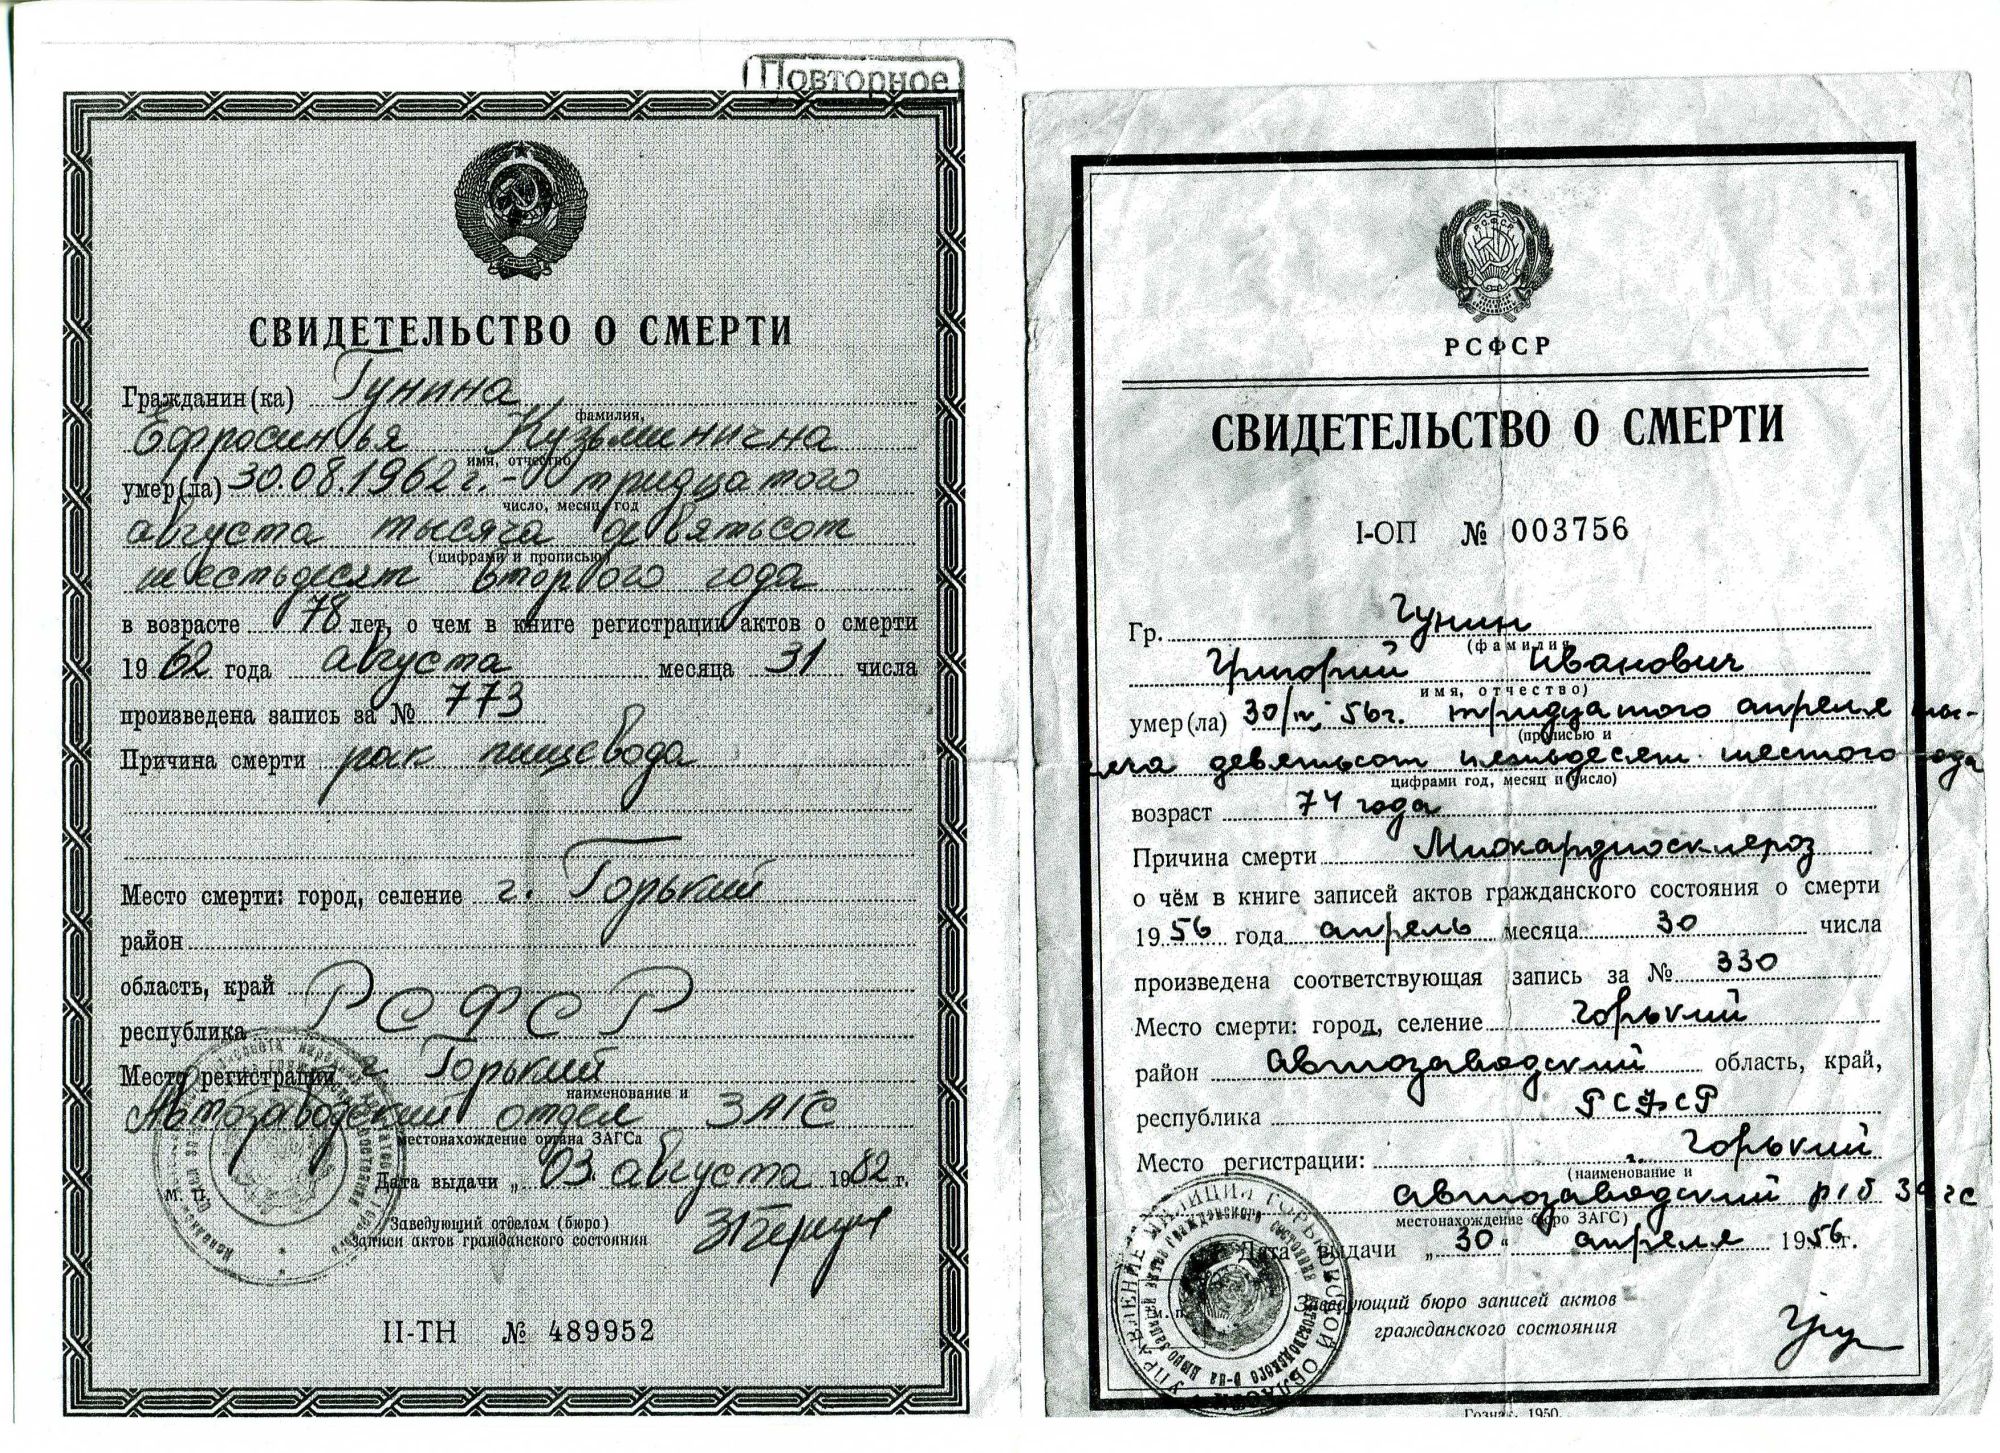 Повторное
СВИДЕТЕЛЬСТВО О СМЕРТИ
Гражданин(ка) Гунина
фамилия,
Ефросинья Кузьминична
имя, отчество
умер(ла) 30.08.1962 г. - тридцатого
число, месяц, год
августа тысяча девятьсот
(цифрами и прописью)
шестьдесят второго года
в возрасте 78 лет, о чем в книге регистрации актов о смерти
1962 года августа месяца 31 числа
произведена запись за № 773
Причина смерти рак пищевода
Место смерти: город, селение г. Горький
район
область, край
республика РСФСР
Место регистрации г. Горький
наименование и
Автозаводский отдел ЗАГС
местонахождение органа ЗАГСа
Дата выдачи „ 03. августа 1982 г.
м. п.
Заведующий отделом (бюро)
записи актов гражданского состояния
II-ТН № 489952
РСФСР
СВИДЕТЕЛЬСТВО О СМЕРТИ
I-ОП № 003756
Гр. Гунин
(фамилия
Григорий Иванович
имя, отчество)
умер(ла) 30/IV 56г. тридцатого апреля тыс-
(прописью и
яча девятьсот пятьдесят шестого года
цифрами год, месяц и число)
возраст 74 года
Причина смерти Миокардиосклероз
о чём в книге записей актов гражданского состояния о смерти
1956 года апрель месяца 30 числа
произведена соответствующая запись за № 330
Место смерти: город, селение Горький
район Автозаводский область, край,
республика РСФСР
Место регистрации: г. Горький
(наименование и
Автозаводский р/б ЗАГС
местонахождение бюро ЗАГС)
Дата выдачи „ 30 “ апреля 1956 г.
м. п.
Заведующий бюро записей актов
гражданского состояния
УПРАВЛЕНИЕ МИЛИЦИИ ГОРЬКОВСКОЙ ОБЛАСТИ
Гознак. 1950.